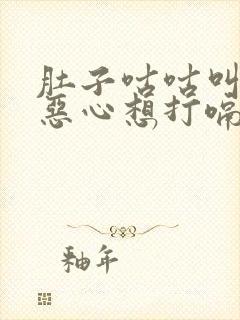 肚子咕咕叫
恶心想打嗝
釉年